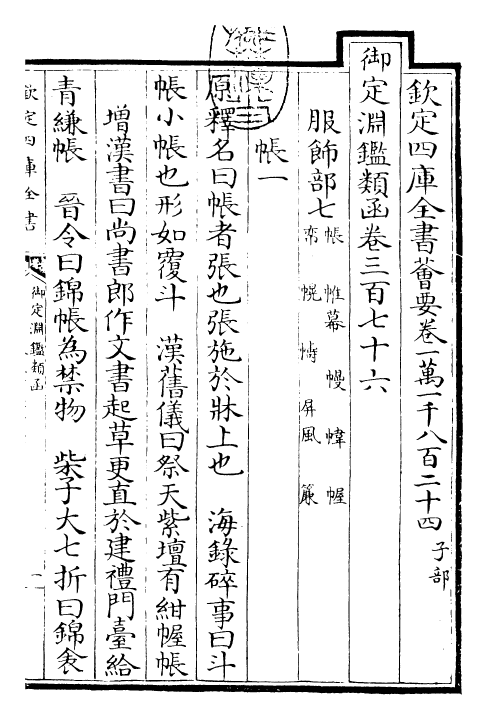 欽定四庫全書薈要卷一萬一千八百二十四 子部
御定淵鑑類函卷三百七十六
服飾部七 帳 帷幕 幔 幃 幄 帟 幌 幬 屏風 簾
帳一
原釋名曰帳者張也張施於牀上也 海錄碎事曰斗
帳小帳也形如覆斗 漢舊儀曰祭天紫壇有紺幄帳
增漢書曰尚書郎作文書起草更直於建禮門臺給
青縑帳 晉令曰錦帳為禁物 柴子大七折曰錦衾
欽定四庫全書
御定淵鑑類函